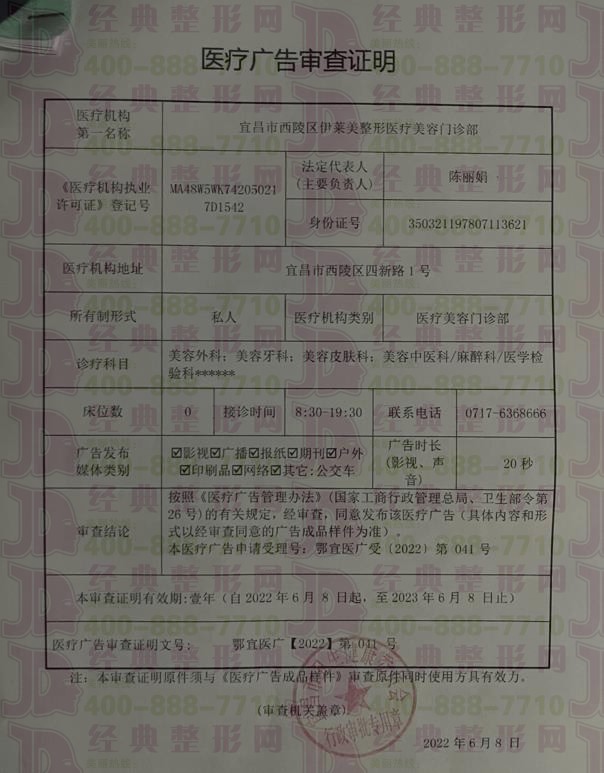 医疗广告审查证明
医疗机构
第一名称
宜昌市西陵区伊莱美整形医疗美容门诊部
《医疗机构执业
许可证》登记号
MA48W5WK74205021
7D1542
法定代表人
(主要负责人)
陈丽娟
身份证号
350321197807113621
医疗机构地址
宜昌市西陵区四新路1号
所有制形式
私人
医疗机构类别
医疗美容门诊部
诊疗科目
美容外科；美容牙科；美容皮肤科；美容中医科/麻醉科/医学检
验科******
床位数
0
接诊时间
8:30-19:30
联系电话
0717-6368666
广告发布
媒体类别
☑影视☑广播☑报纸☑期刊☑户外
☑印刷品☑网络☑其它:公交车
广告时长
(影视、声
音)
20秒
审查结论
按照《医疗广告管理办法》(国家工商行政管理总局、卫生部令第
26号)的有关规定，经审查，同意发布该医疗广告（具体内容和形
式以经审查同意的广告成品样件为准）。
本医疗广告申请受理号：鄂宜医广受（2022）第 041 号
本审查证明有效期:壹年（自2022年6月8日起，至2023年6月8日止）
医疗广告审查证明文号: 鄂宜医广【2022】第 041 号
注：本审查证明原件须与《医疗广告成品样件》审查原件同时使用方具有效力。
(审查机关盖章)
行政审批专用章
2022年6月8日
经典整形网
400-888-7710